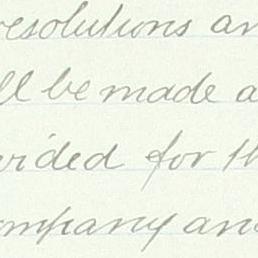 resolutions an
ll be made a
vided for th
ompany and